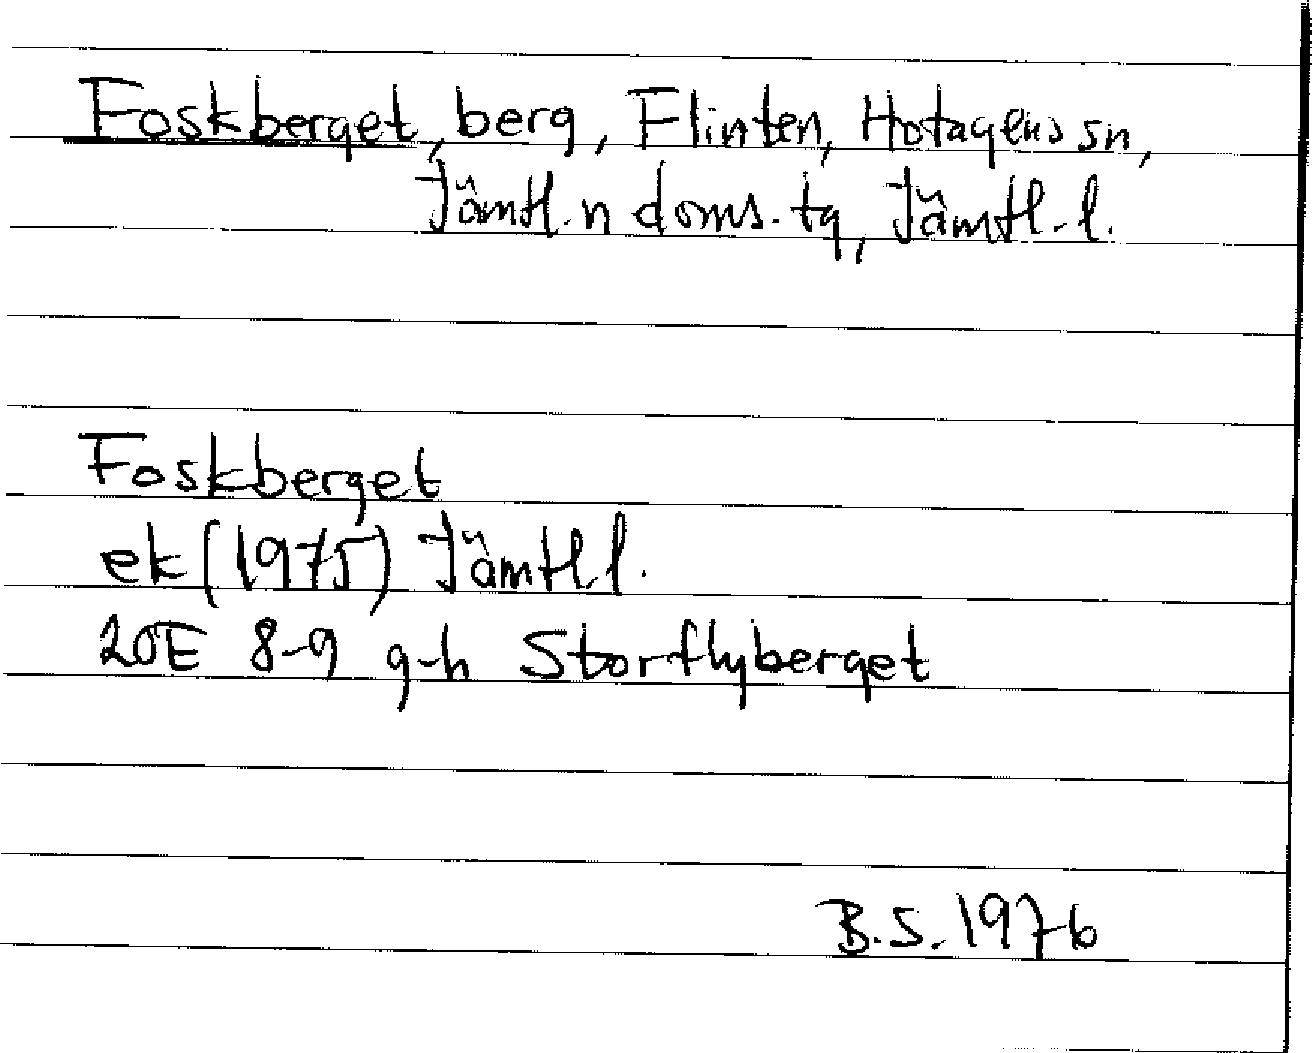 Foskberget, berg, Flinten, Hotagens sn,
Jämtl. n doms. tg, Jämtl. l.
Foskberget
ek (1975) Jämtl. l.
20E 8-9 g-h Storflyberget
B.S. 1976